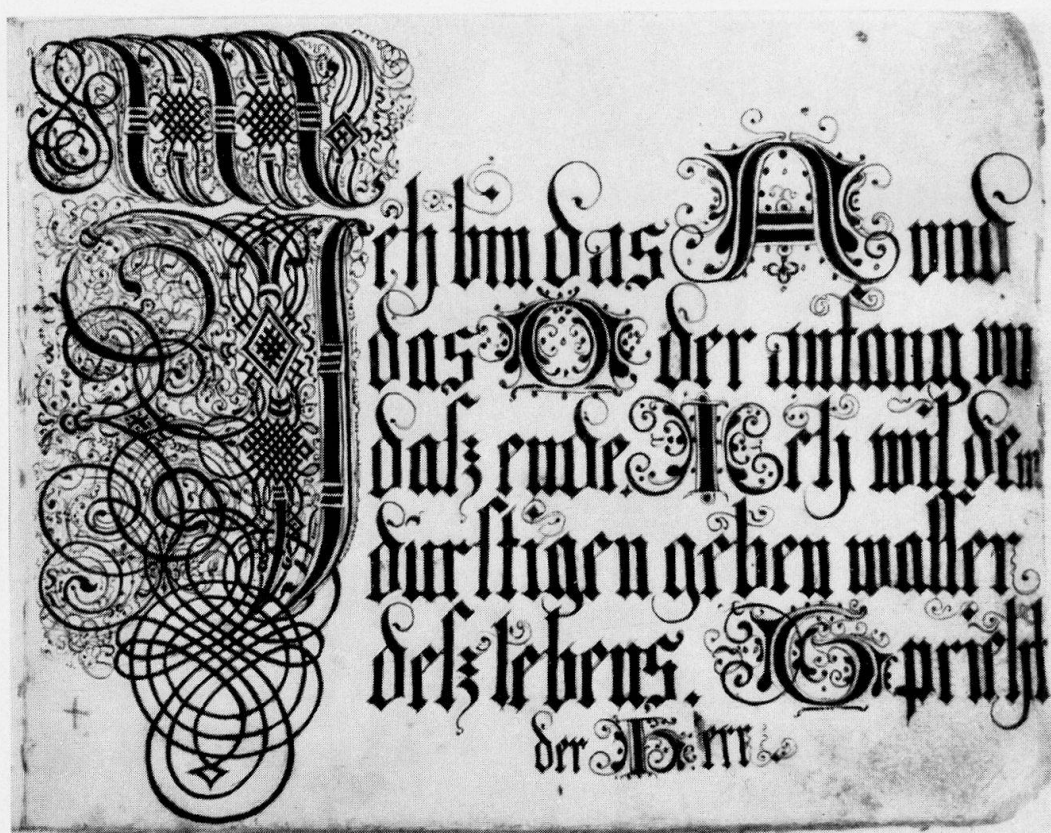 Ich bin das A und
das O der anfang vn
daſz ende. Ich wil dem
durſtigen geben waſſer
deſz lebens. Spricht
der Herr